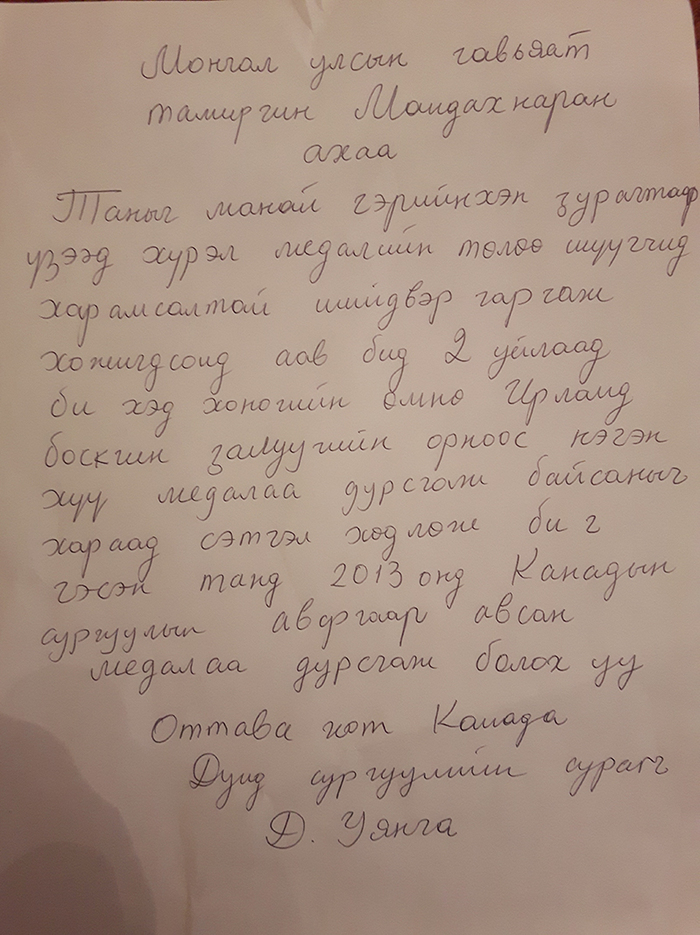 Монгал улсын гавьяат
тамирчин Мандахнаран
ахаа
Таныг манай гэрийнхэн зурагтаар
үзээд хүрэл медалийн төлөө шүүгчид
харамсалтай шийдвэр гаргаж
хожигдсонд аав бид 2 уйлаад
би хэд хоногийн өмнө Ирланд
боскчин залуугийн орноос нэгэн
хүү медалаа дурсгаж байсаныг
хараад сэтгэл хөдлөж би ч
гэсэн танд 2013 онд Канадын
сургуулын аваргаар авсан
медалаа дурсгаж болох уу
Оттава хот Канада
Дунд сургуулийн сурагч
Д. Уянга